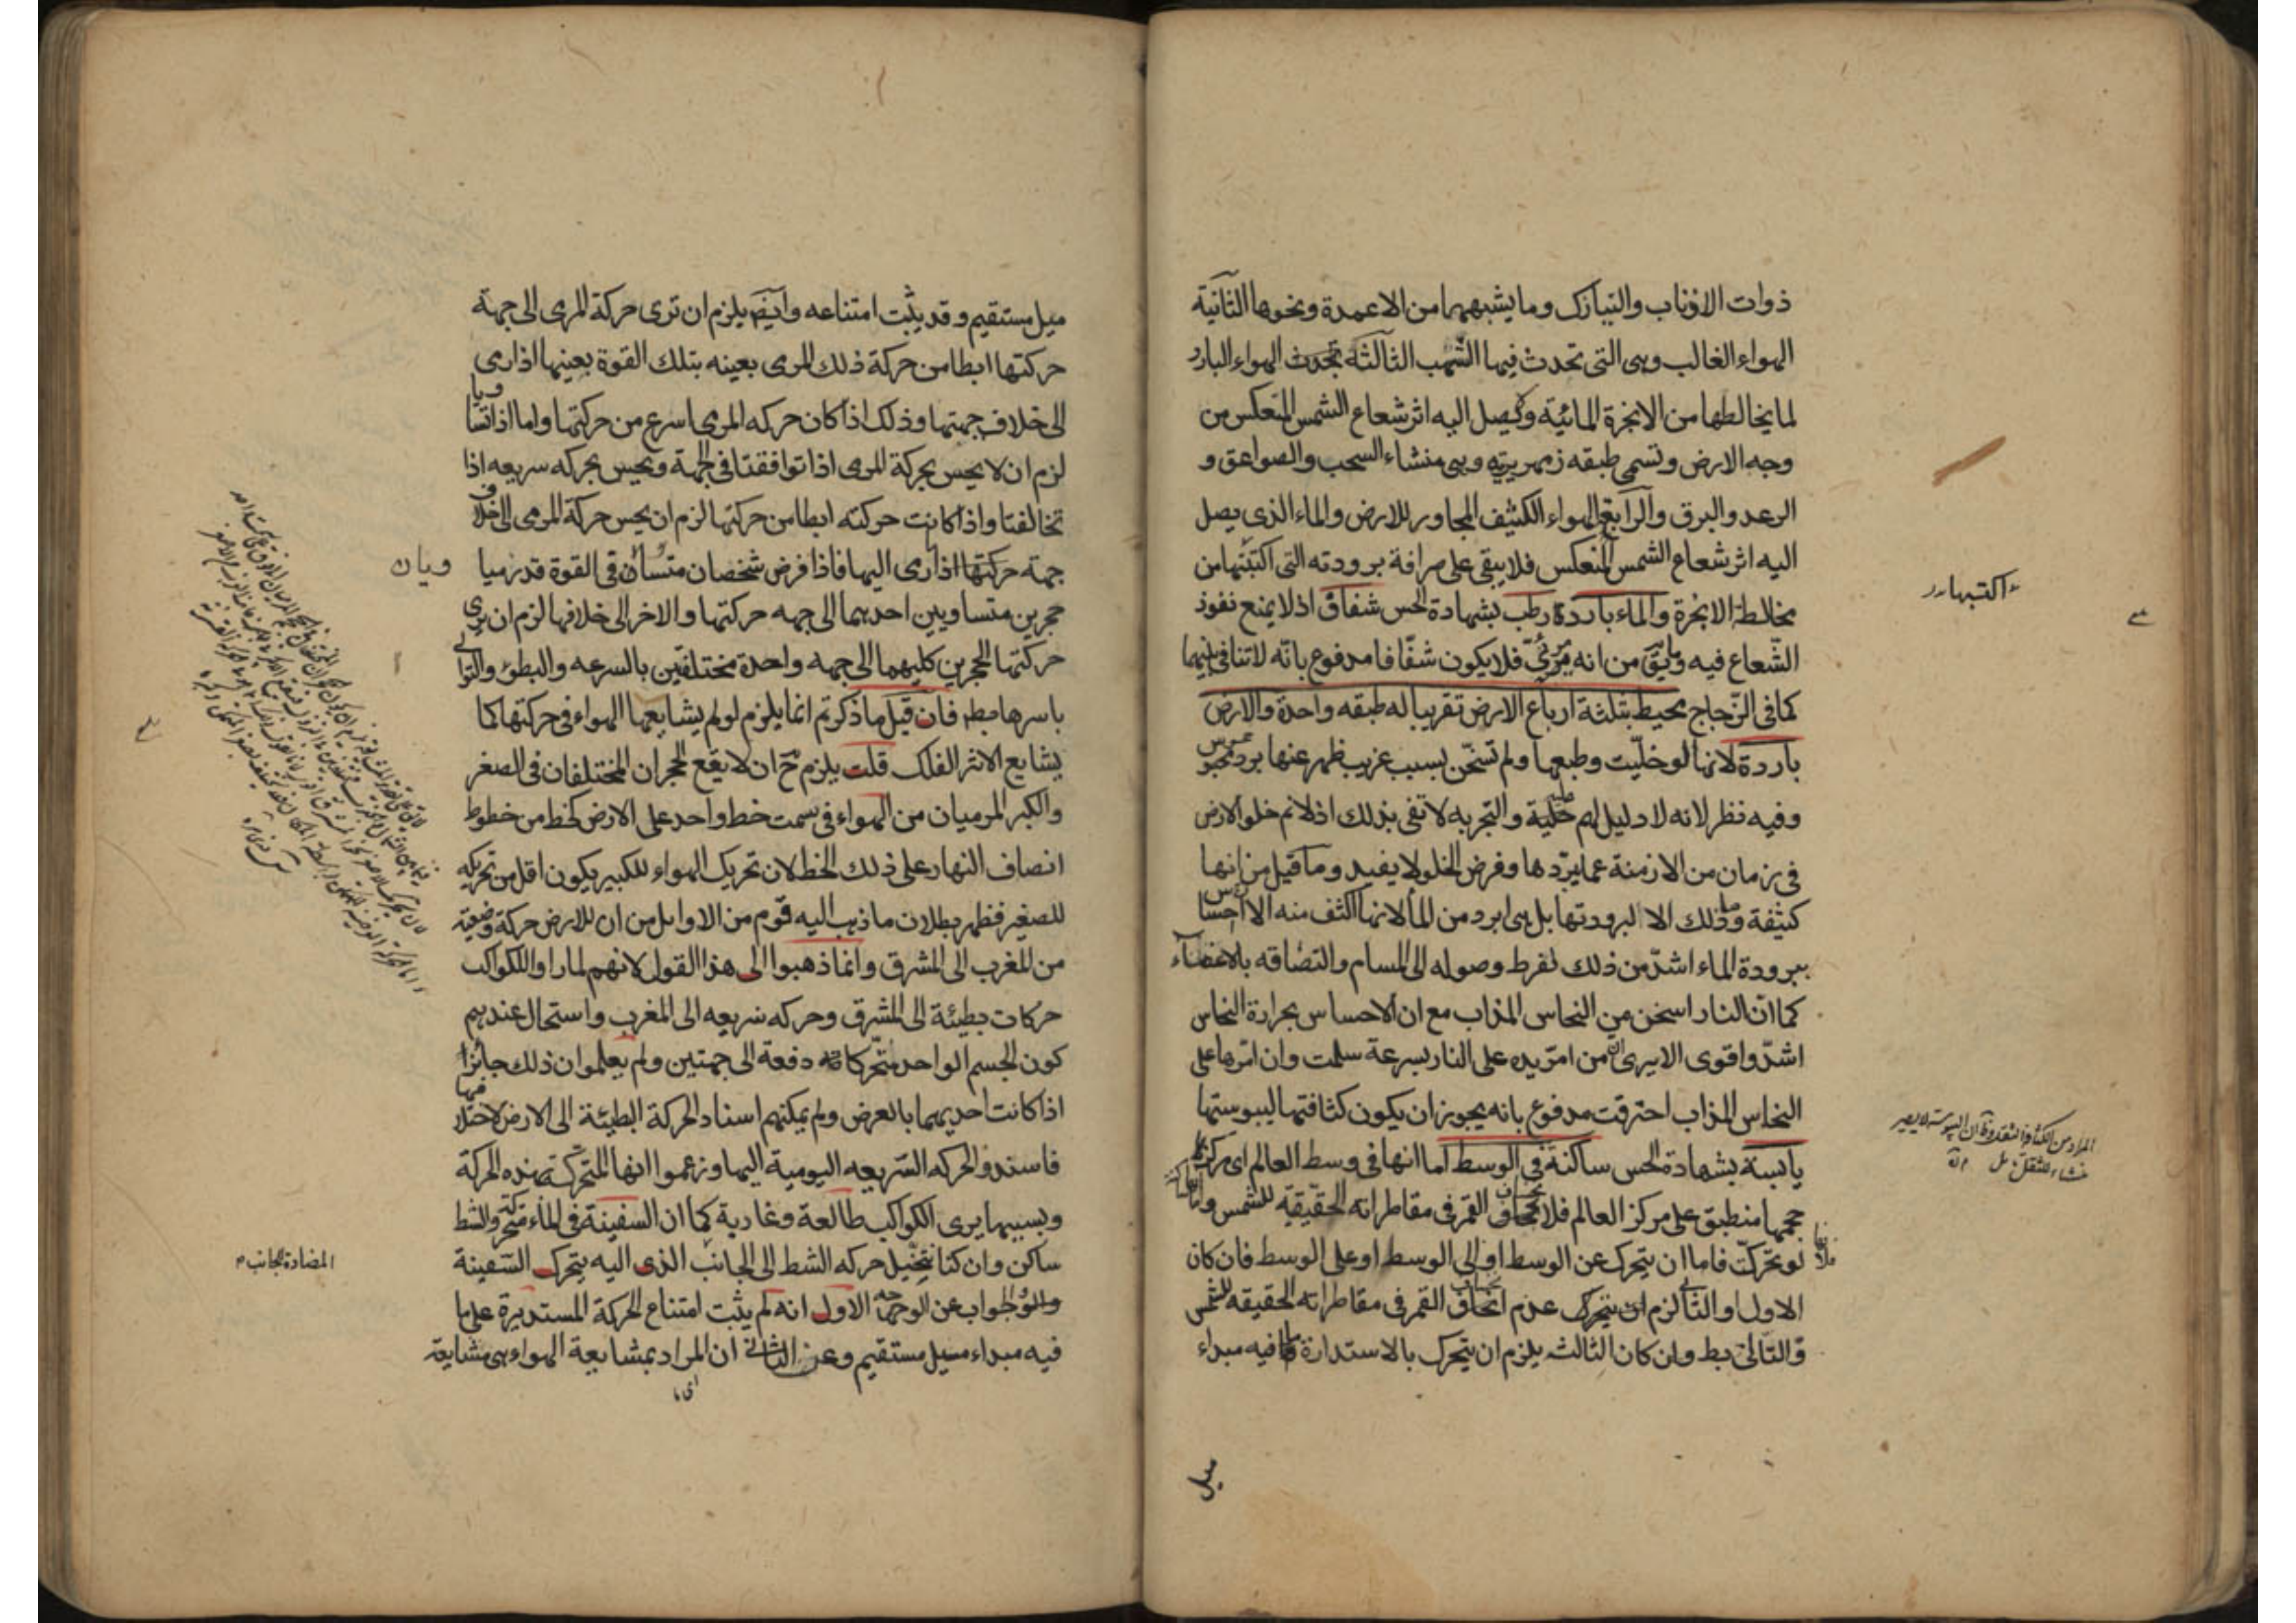 ذوات الاذناب والنيازك وما يشبههما من الاعمدة ونحوها الثانية
الهواء الغالب وهى التى تحدث فيها الشهب الثالثة تحدث الهواء البارد
لما يخالطها من الابخرة المائية ولا يصل اليه اثر شعاع الشمس المنعكس من
وجه الارض وتسمى طبقه زمهريرية وهى منشاء السحب والصواعق و
الرعد والبرق والرابع الهواء الكثيف المجاور للارض والماء الذى يصل
اليه اثر شعاع الشمس المنعكس فلا يبقى على صرافة برودته التى اكتبتها من
مخالطة الابخرة والماء باردة رطب بشهادة الحس شفاف اذ لا يمنع نفوذ
الشعاع فيه وما يق من انه مرئى فلا يكون شفافا مدفوع بانه لا تنافى بينهما
كما فى الزجاج محيط بثلثة ارباع الارض تقريبا له طبقه واحدة والارض
باردة لانها لو خليت وطبعها ولم تسخن بسبب غريب ظهر عنها برد محسوس
وفيه نظر لانه لا دليل لهم عليه والتجربه لا تفى بذلك اذ لا نم خلو الارض
فى زمان من الازمنة عما يبردها وفرض الخلو لا يفيد وما قيل من انها
كثيفة وما ذلك الا لبرودتها بل هى ابرد من الماء لانها اكثف منه الا ان احساس
ببرودة الماء اشد من ذلك لفرط وصوله الى المسام والتصاقه بالاعضاء
كما ان النار اسخن من النحاس المذاب مع ان الاحساس بحرارة النحاس
اشد واقوى الا يرى ان من امر يده على النار بسرعة سلمت وان امرها على
النحاس المذاب احترقت مدفوع بانه يجوز ان يكون كثافتها ليبوستها
يابسة بشهادة الحس ساكنة فى الوسط اما انها فى وسط العالم اى مركز
حجمها منطبق على مركز العالم فلانخساف القمر فى مقاطراته الحقيقية للشمس واما
لو تحركت فاما ان يتحرك عن الوسط او الى الوسط او على الوسط فان كان
الاول او الثانى لزم عدم انخساف القمر فى مقاطراته الحقيقه للشمس
والتالى بط وان كان الثالث يلزم ان يتحرك بالاستدارة ما فيه مبداء
ميل
اكتبها
ميل مستقيم وقد يثبت امتناعه وايض يلزم ان ترى حركة المرمى الى جهة
حركتها ابطا من حركة ذلك المرمى بعينه بتلك القوة بعينها اذا رمى
الى خلاف جهتها وذلك اذا كان حركه المرمى اسرع من حركتها واما اذا تساويا
لزم ان لا يحس بحركة المرمى اذا توافقتا فى الجهة ويحس بحركه سريعه اذا
تخالفتا واذا كانت حركته ابطا من حركتها لزم ان يحس حركة المرمى الى خلاف
جهة حركتها اذا رمى اليها فاذا فرض شخصان متساويان فى القوة قد رميا
حجرين متساويين احدهما الى جهه حركتها والاخر الى خلافها لزم ان يرى
حركتها الحجرين كليهما الى جهه واحدة مختلفين بالسرعه والبطؤ والتوالى
باسرها بط فان قيل ما ذكرتم انما يلزم لو لم يشايعها الهواء فى حركتها كما
يشايع الاثر الفلك قلت يلزم ح ان لا يقع الحجران المختلفان فى الصغر
والكبر المرميان من الهواء فى سمت خط واحد على الارض كخط من خطوط
انصاف النهار على ذلك الخط لان تحريك الهواء للكبير يكون اقل من تحريكه
للصغير فظهر بطلان ما ذهب اليه قوم من الاوايل من ان للارض حركة وضعية
من المغرب الى المشرق وانما ذهبوا الى هذا القول لانهم لما راوا للكواكب
حركات بطيئة الى المشرق وحركه سريعه الى المغرب واستحال عندهم
كون الجسم الواحد متحركا دفعة الى جهتين ولم يعلموا ان ذلك جائز
اذا كانت احديهما بالعرض ولم يمكنهم اسناد الحركة البطيئة الى الارض لاختلافها
فاسندوا الحركه السريعه اليومية اليها وزعموا انها المتحركة بهذه الحركة
وبسببها يرى الكواكب طالعة وغاربة كما ان السفينة فى الماء متحركة والشط
ساكن وان كنا نتخيل حركه الشط الى الجانب الذى اليه يتحرك السفينة
والجواب عن الوجه الاول انه لم يثبت امتناع الحركة المستديرة على ما
فيه مبداء ميل مستقيم وعن الثانى ان المراد بمشايعة الهواء هى مشايعة
ويان
المضادة لجانب